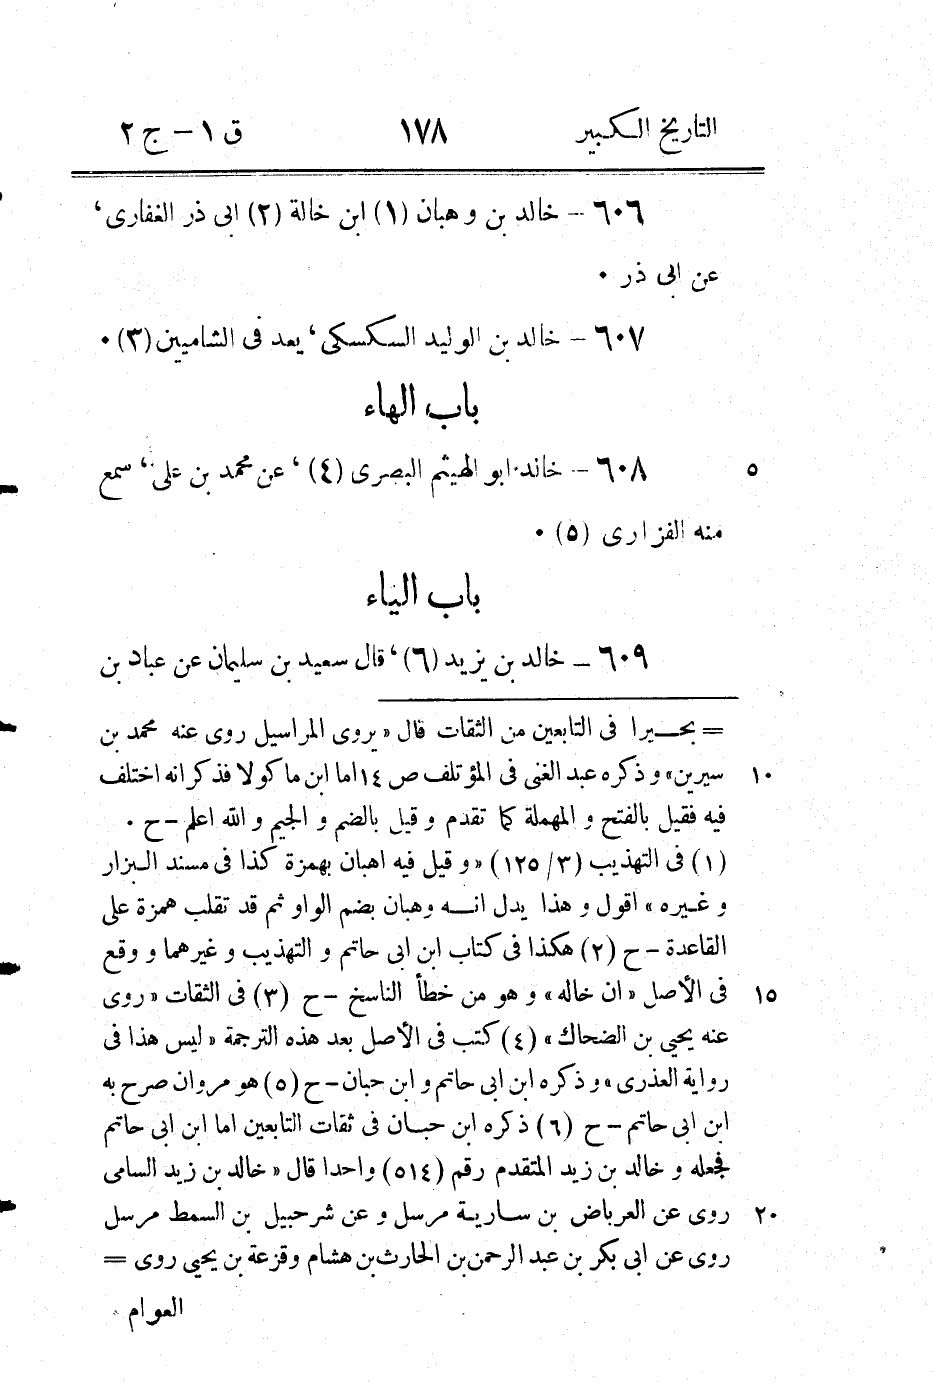 التاريخ الكبير ١٧٨ ق ١ – ج ٢
٦٠٦ – خالد بن وهبان (١) ابن خالة (٢) ابى ذر الغفارى ،
عن ابى ذر ٠
٦٠٧ – خالد بن الوليد السكسكى ، يعد فى الشاميين (٣) ٠
باب الهاء
٦٠٨ – خالد ابو الهيثم البصرى (٤) ، عن محمد بن على ، سمع ٥
منه الفزارى (٥) ٠
باب الياء
٦٠٩ – خالد بن يزيد (٦) ، قال سعيد بن سليمان عن عباد بن
= بحيرا فى التابعين من الثقات قال « يروى المراسيل روى عنه محمد بن
سيرين » و ذكره عبد الغنى فى المؤتلف ص ١٤ اما ابن ماكولا فذكر انه اختلف ١٠
فيه فقيل بالفتح و المهملة كما تقدم و قيل بالضم و الجيم و الله اعلم – ح ٠
(١) فى التهذيب (٣/ ١٢٥) « و قيل فيه اهبان بهمزة كذا فى مسند البزار
و غيره » اقول و هذا يدل انه وهبان بضم الواو ثم قد تقلب همزة على
القاعدة – ح (٢) هكذا فى كتاب ابن ابى حاتم و التهذيب و غيرهما و وقع
فى الأصل « ان خاله » و هو من خطأ الناسخ – ح (٣) فى الثقات « روى ١٥
عنه يحيى بن الضحاك » (٤) كتب فى الأصل بعد هذه الترجمة « ليس هذا فى
رواية العذرى » و ذكره ابن ابى حاتم و ابن حبان – ح (٥) هو مروان صرح به
ابن ابى حاتم – ح (٦) ذكره ابن حبان فى ثقات التابعين اما ابن ابى حاتم
فجعله و خالد بن زيد المتقدم رقم (٥١٤) واحدا قال « خالد بن زيد السامى
روى عن العرباض بن سارية مرسل و عن شرحبيل بن السمط مرسل ٢٠
روى عن ابى بكر بن عبد الرحمن بن الحارث بن هشام وقزعة بن يحيى روى =
العوام